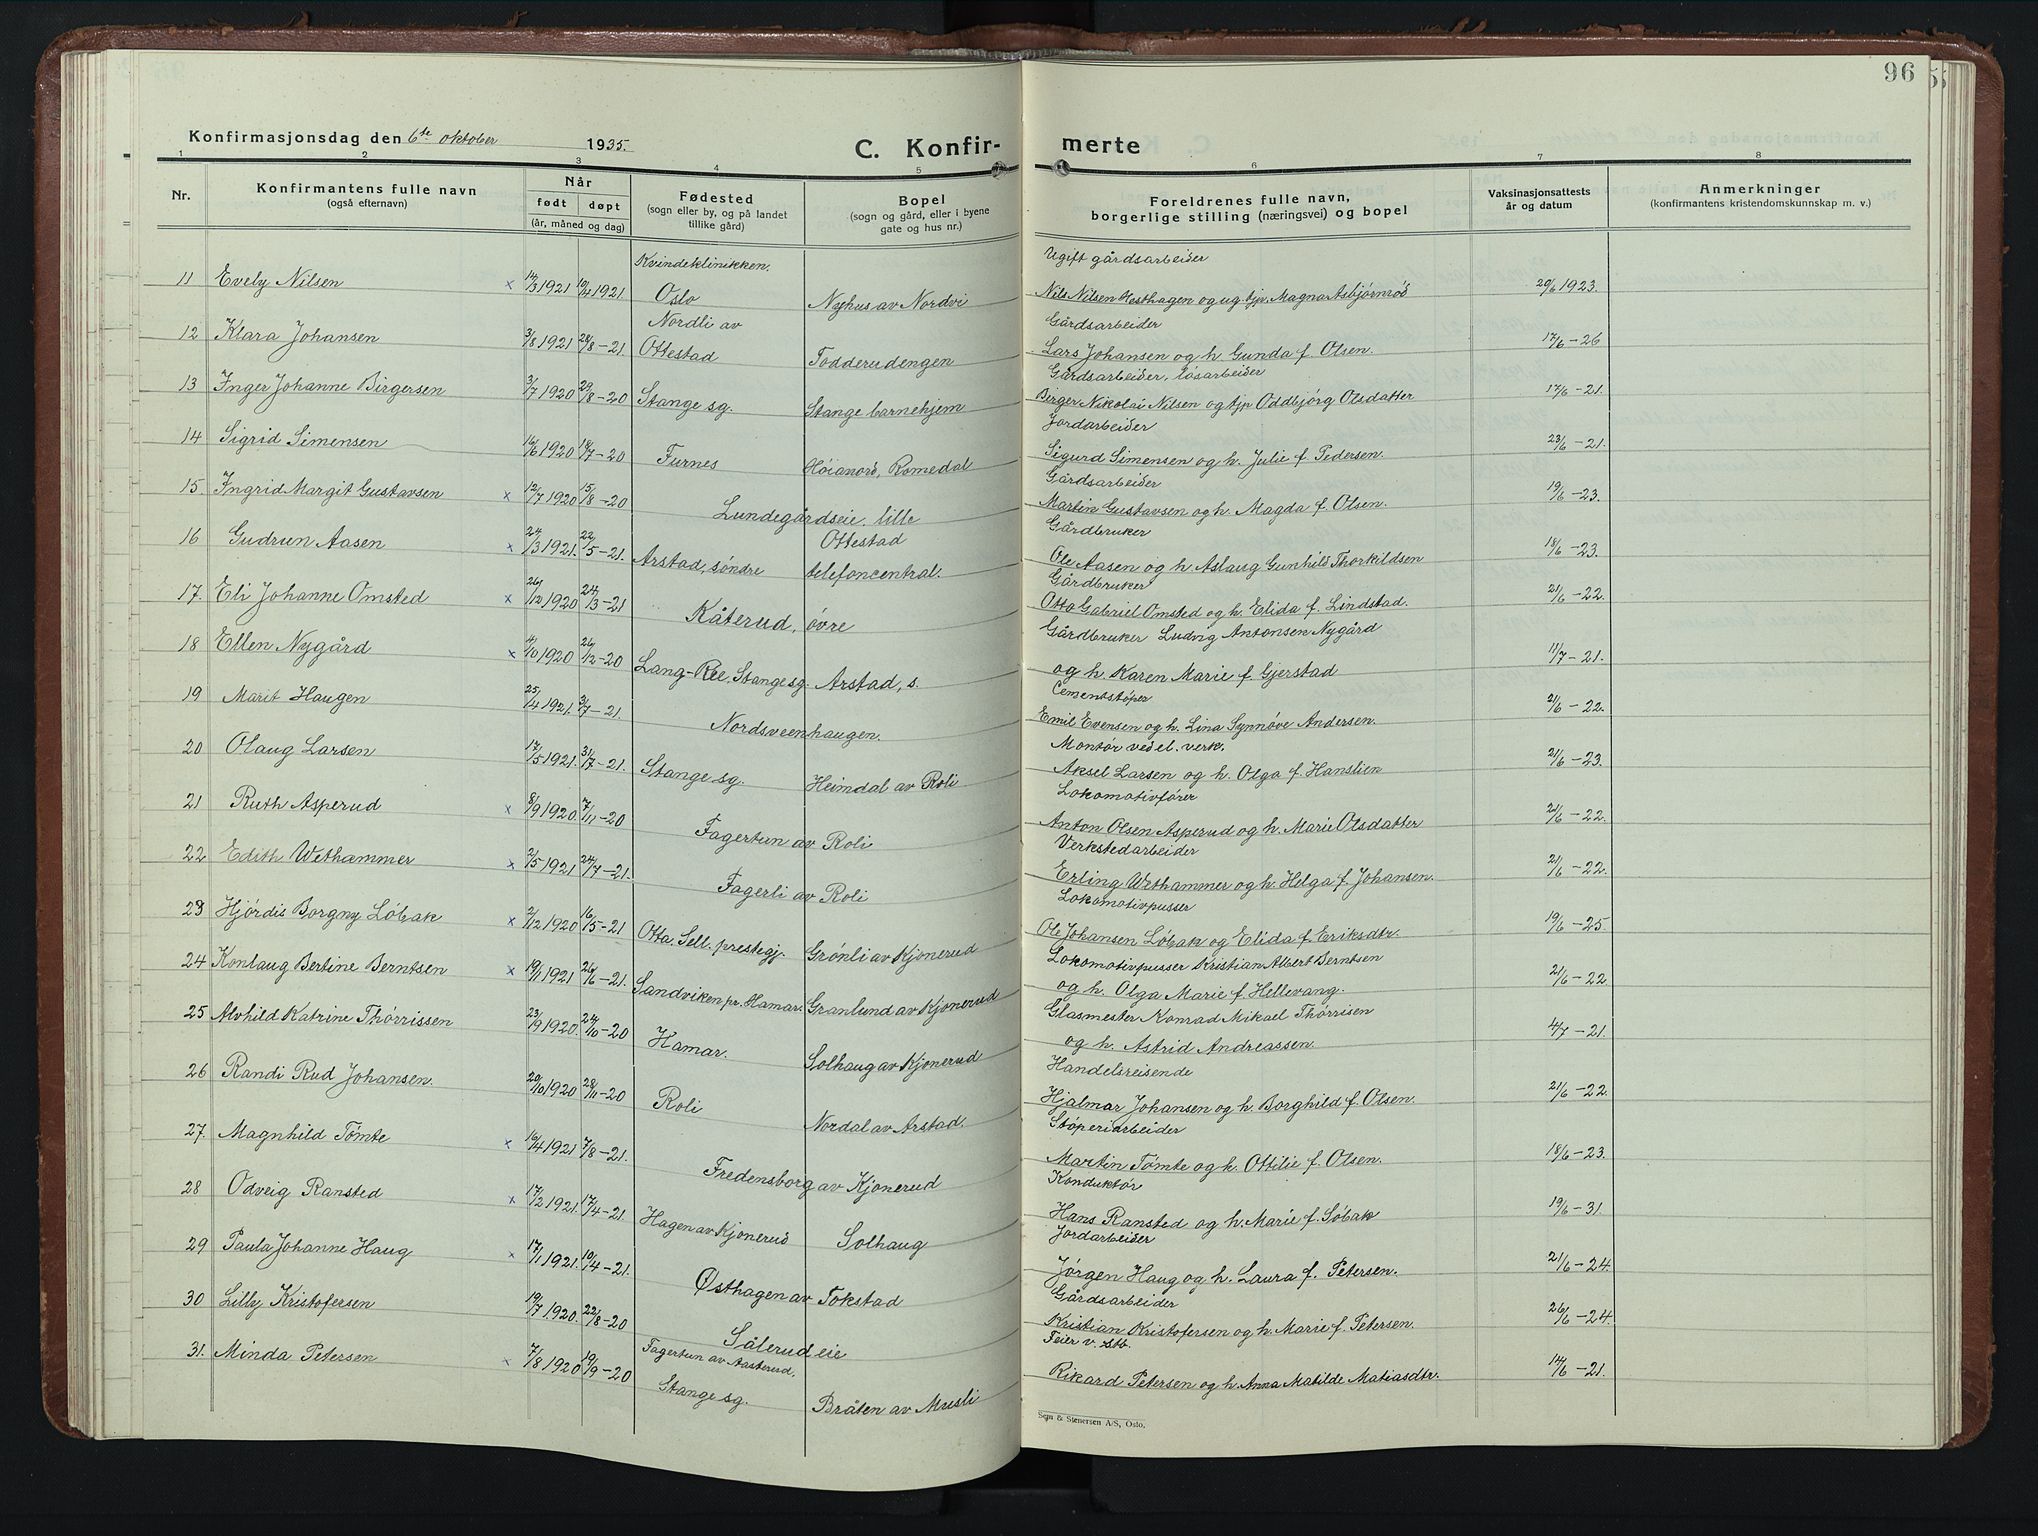 96
Konfirmasjonsdag den 6te oktober 1935.
C. Konfir-
merte
1 2 3 4 5 6 7 8
Nr.
Konfirmantens fulle navn
(også efternavn)
Når
født
døpt
(år, måned og dag)
Fødested
(sogn eller by, og på landet
tillike gård)
Bopel
(sogn og gård, eller i byene
gate og hus nr.)
Foreldrenes fulle navn,
borgerlige stilling (næringsvei) og bopel
Vaksinasjonsattests
år og datum
Anmerkninger
(konfirmantens kristendomskunnskap m. v.)
Kvindeklinikken. Ugift gårdsarbeider
11 Evely Nilsen × 14/3 1921 10/4 1921. Oslo Nyhus av Nordvi Nils Nilsen Hesthagen og ug. tjp. Magna Asbjørnrød 20/6 1923.
Nordli av Gårdsarbeider
12 Klara Johansen 3/8 1921 28/8-21. Ottestad Fodderudengen Lars Johansen og h. Gunda f. Olsen. 17/6-26
Gårdsarbeider, løsarbeider
13 Inger Johanne Birgersen 3/7 1920 29/8-20 Stange sg. Stange barnehjem Birger Nikolai Nilsen og tjp Oddbjørg Olsdatter 17/6-21.
Jordarbeider
14 Sigrid Simensen 16/6 1920 18/7-20 Furnes Høianord, Romedal Sigurd Simensen og h. Julie f. Pedersen. 23/6-21.
Gårdsarbeider
15 Ingrid Margit Gustavsen × 12/7 1920 15/8-20 Lundegårdseie, lille Martin Gustavsen og h. Magda f. Olsen. 19/6-23.
Ottestad Gårdbruker
16 Gudrun Aasen × 24/3 1921. 22/5-21. Arstad, søndre telefoncentral. Ole Aasen og h. Aslaug Gunhild Thorkildsen 18/6-23.
Gårdbruker
17. Eli Johanne Omsted × 26/12 1920 24/3-21 Kåterud, øvre Otto Gabriel Omsted og h. Elida f. Lindstad. 21/6-22.
Gårdbruker Ludvig Antonsen Nygård
18 Ellen Nygård × 4/10 1920 26/12-20 Lang-Ree, Stange sg. Arstad, s. og h. Karen Marie f. Gjerstad 11/7-21.
Cementstøper
19 Marit Haugen 25/4 1921. 3/7-21. Nordsveenhaugen. Emil Evensen og h. Lina Synnøve Andersen. 21/6-22.
Montør ved el. verk.
20 Olaug Larsen 17/5 1921. 31/7-21. Stange sg. Heimdal av Roli Aksel Larsen og h. Olga f. Hanslien 21/6-23.
Lokomotivfører
21 Ruth Asperud × 8/9 1920. 7/11-20 Fagertun av Roli Anton Olsen Asperud og h. Marie Olsdatter 21/6-22.
Verkstedarbeider
22 Edith Wethammer × 2/5 1921 24/7-21. Fagerli av Roli Erling Wethammer og h. Helga f. Johansen. 21/6-22.
Lokomotivpusser
23 Hjørdis Borgny Løbak × 2/12 1920 16/5-21 Otta, Sell. prestegj. Grønli av Kjonerud Ole Johansen Løbak og Elida f. Eriksdtr. 19/6-25.
Lokomotivpusser Kristian Albert Berntsen
24 Konlaug Bertine Berntsen × 19/1 1921 26/6-21. Sandviken pr. Hamar Granlund av Kjonerud og h. Olga Marie f. Hellevang. 21/6-22
Glasmester Konrad Mikael Thørrisen
25 Alvhild Katrine Thørrissen 23/9 1920. 24/10-20 Hamar. Solhaug av Kjonerud og h. Astrid Andreassen 4/7-21.
Handelsreisende
26 Randi Rud Johansen. 20/10 1920 28/11-20 Roli Nordal av Arstad. Hjalmar Johansen og h. Borghild f. Olsen. 21/6-22.
Støperiarbeider
27. Magnhild Tømte × 16/4 1921 7/8-21. Fredensborg av Kjonerud Martin Tømte og h. Ottilie f. Olsen. 18/6-23.
Konduktør
28 Odveig Ransted × 17/2 1921. 17/4-21. Hagen av Kjonerud Solhaug Hans Ransted og h. Marie f. Søbak 19/6-31.
Jordarbeider
29 Paula Johanne Haug × 17/1 1921. 10/4-21. Østhagen av Tokstad Jørgen Haug og h. Laura f. Petersen. 21/6-24.
Gårdsarbeider
30 Lilly Kristofersen 19/7 1920. 22/8-20 Sålerudeie Kristian Kristofersen og h. Marie f. Petersen. 26/6-24.
Fagertun av Aasterud, Feier v. stb.
31. Minda Petersen × 7/8 1920 19/9-20 Stange sg. Bråten av Musli Rikard Petersen og h. Anna Matilde Matiasdtr. 14/6-21.
Sem & Stenersen A/S, Oslo.